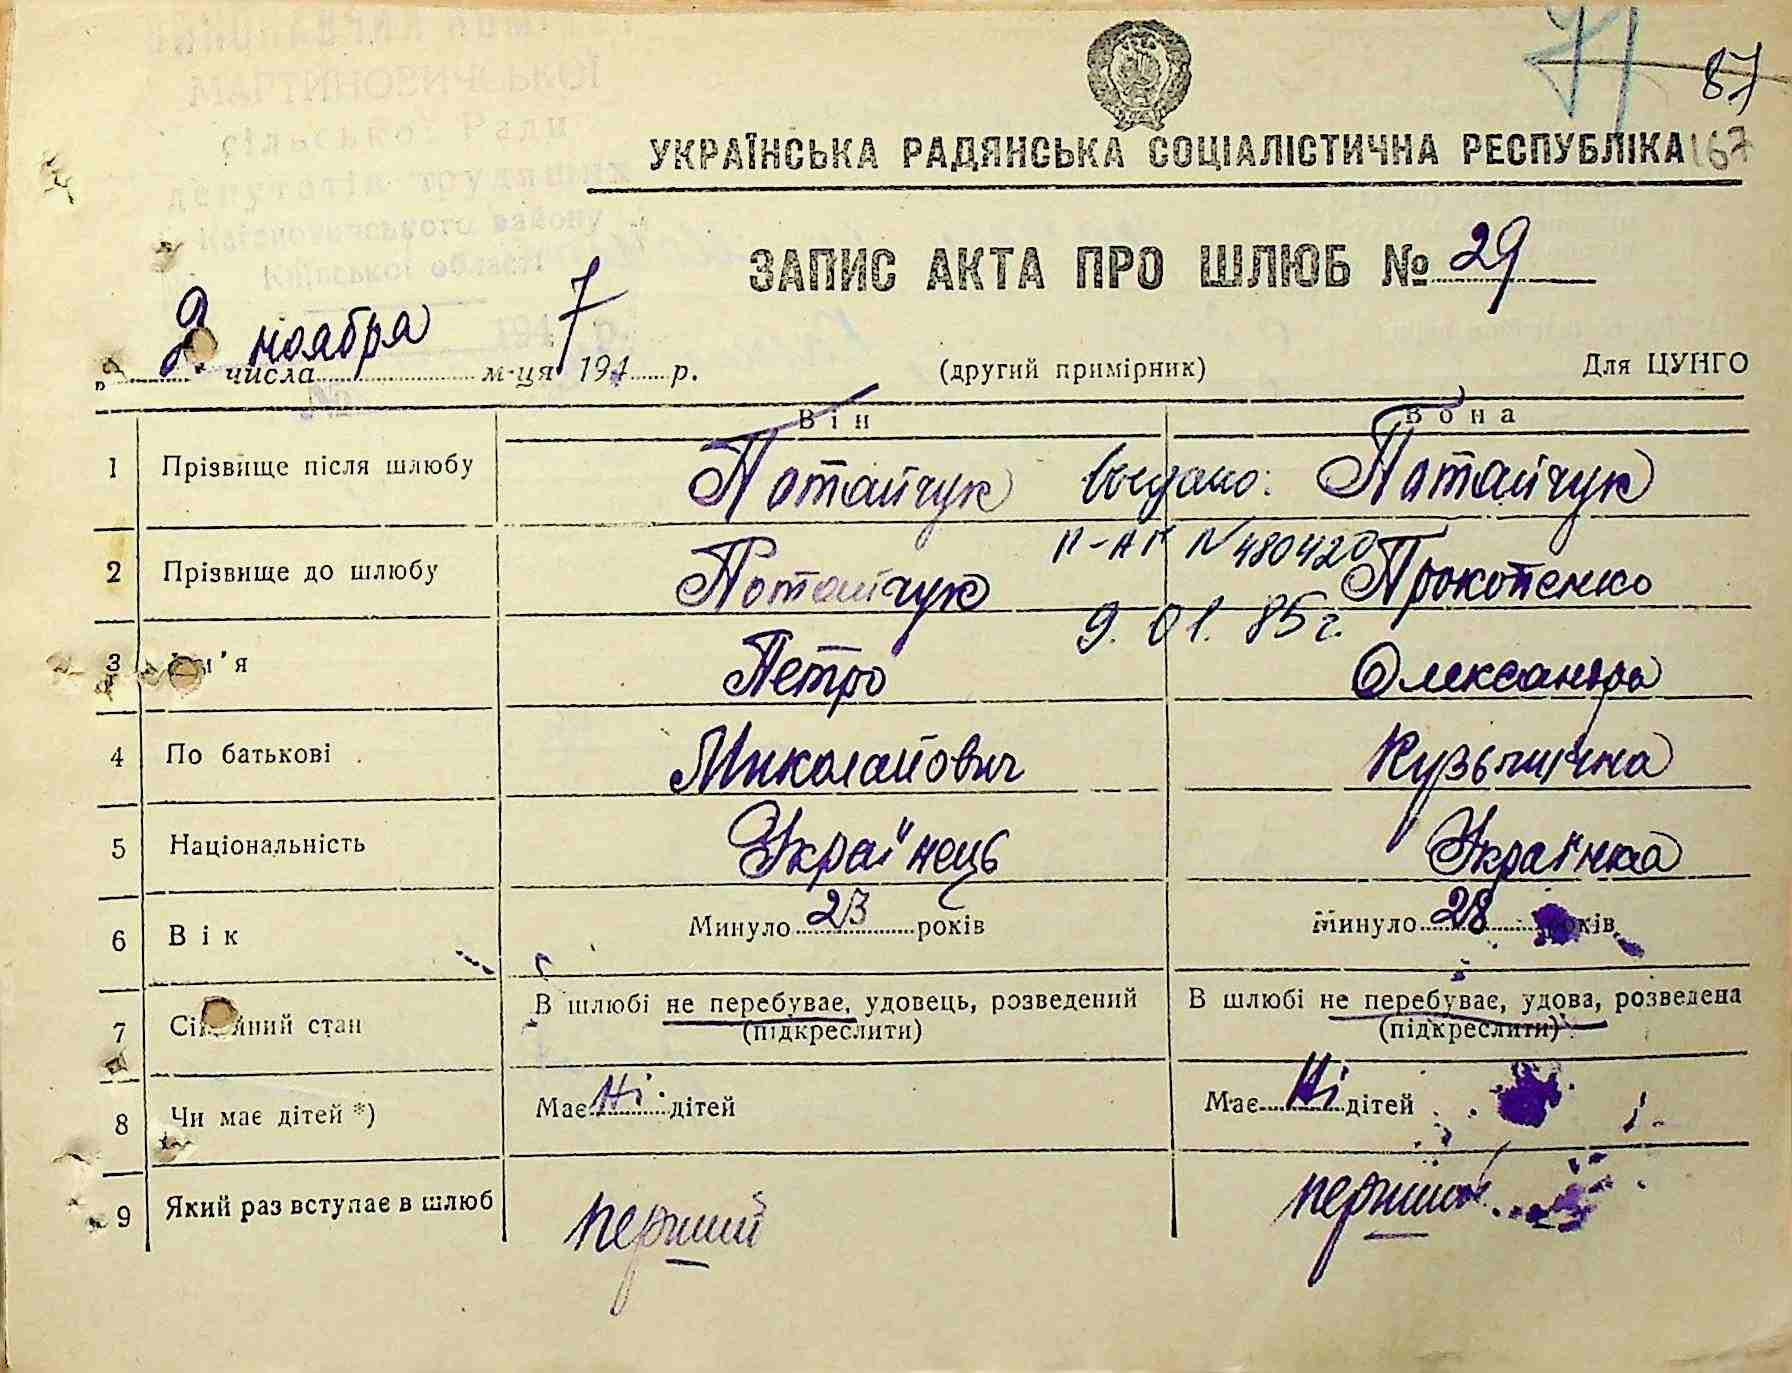 71 87
УКРАЇНСЬКА РАДЯНСЬКА СОЦІАЛІСТИЧНА РЕСПУБЛІКА 167
ЗАПИС АКТА ПРО ШЛЮБ № 29
„2" числа ноября м-ця 1947 р. (другий примірник) Для ЦУНГО
Він Вона
1 Прізвище після шлюбу Потайчук Выдано: Потайчук
2 Прізвище до шлюбу Потайчук II-АК N 480420 Прокопенко
9.01.85г.
3 Ім'я Петро Олександра
4 По батькові Миколайович Кузьмічна
5 Національність Українець Українка
6 Вік Минуло 23 років Минуло 28 років
7 Сімейний стан В шлюбі не перебуває, удовець, розведений В шлюбі не перебуває, удова, розведена
(підкреслити) (підкреслити)
8 Чи має дітей *) Має Ні дітей Має Ні дітей
9 Який раз вступає в шлюб перший перший